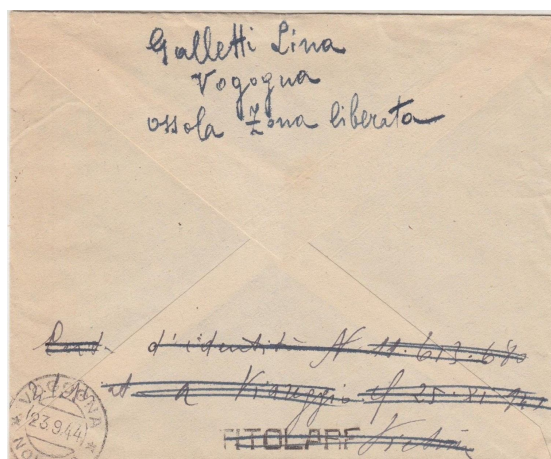 Galletti Lina
Vogogna
ossola Zona liberata
d'identità N 11.613.680
a Viareggio
TITOLARE
VOGOGNA
23.9.44